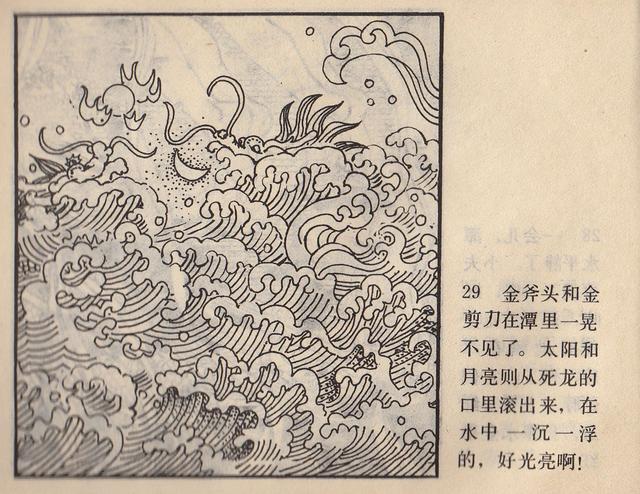 29 金斧头和金
剪刀在潭里一晃
不见了。太阳和
月亮则从死龙的
口里滚出来，在
水中一沉一浮
的，好光亮啊！